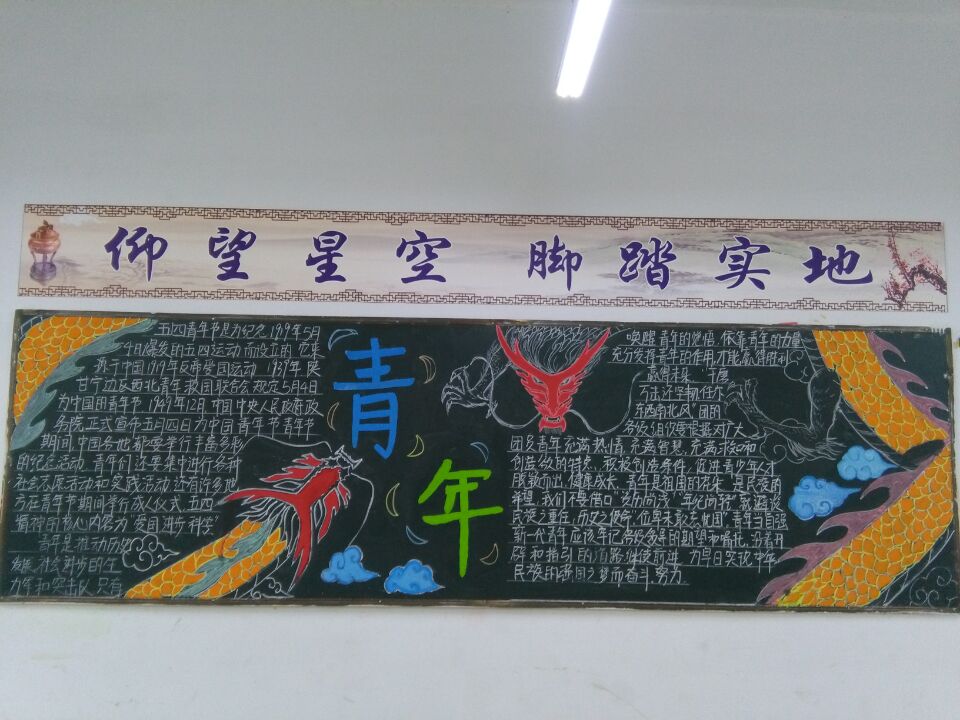 仰望星空 脚踏实地
青年
五四青年节是为纪念1919年5月
4日爆发的五四运动而设立的 它来
源于中国1919年反帝爱国运动 1939年陕
甘宁边区西北青年救国联合会规定5月4日
为中国青年节 1949年12月 中国中央人民政府政
务院正式宣布五月四日为中国青年节 青年节
期间 中国各地都要举行丰富多彩
的纪念活动 青年们还要集中进行各种
社会志愿活动和实践活动 还有许多地
方在青年节期间举行成人仪式 五四
精神的核心内容为"爱国 进步 科学"
青年是推动历史
发展 社会进步的生
力军和突击队 只有
唤醒青年的觉悟 依靠青年的力量
充分发挥青年的作用 才能赢得胜利
赢得未来
东西南北风"团的
各级组织要根据对广大
团员青年充满热情 充满智慧 充满求知和
创造欲的特点 积极创造条件 促进青少年人才
服教而出 健康成长 青年是祖国的花朵 是民族的
希望 我们不要借口"资历尚浅""年纪尚轻"就避谈
民族之重任 历史之使命"位卑未敢忘忧国"青年当自强
新一代青年应该牢记各级领导的期望和嘱托 沿着开
辟和指引的道路继续前进 为早日实现中华
民族的强国之梦而奋斗 努力